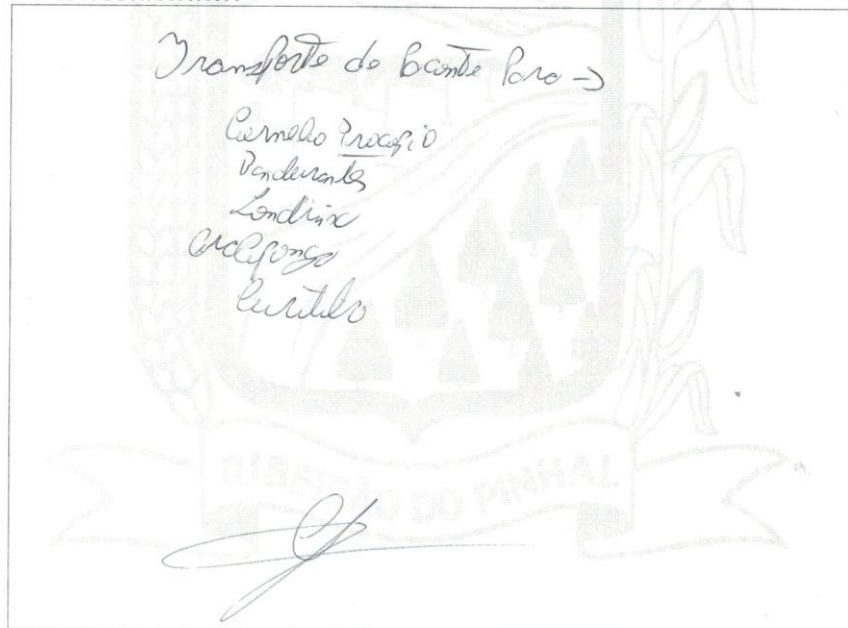 Transporte de Pacente Para ->
Cornelio Procopio
Bandeirantes
Londrina
Arapongas
Curitiba
RIBEIRÃO DO PINHAL